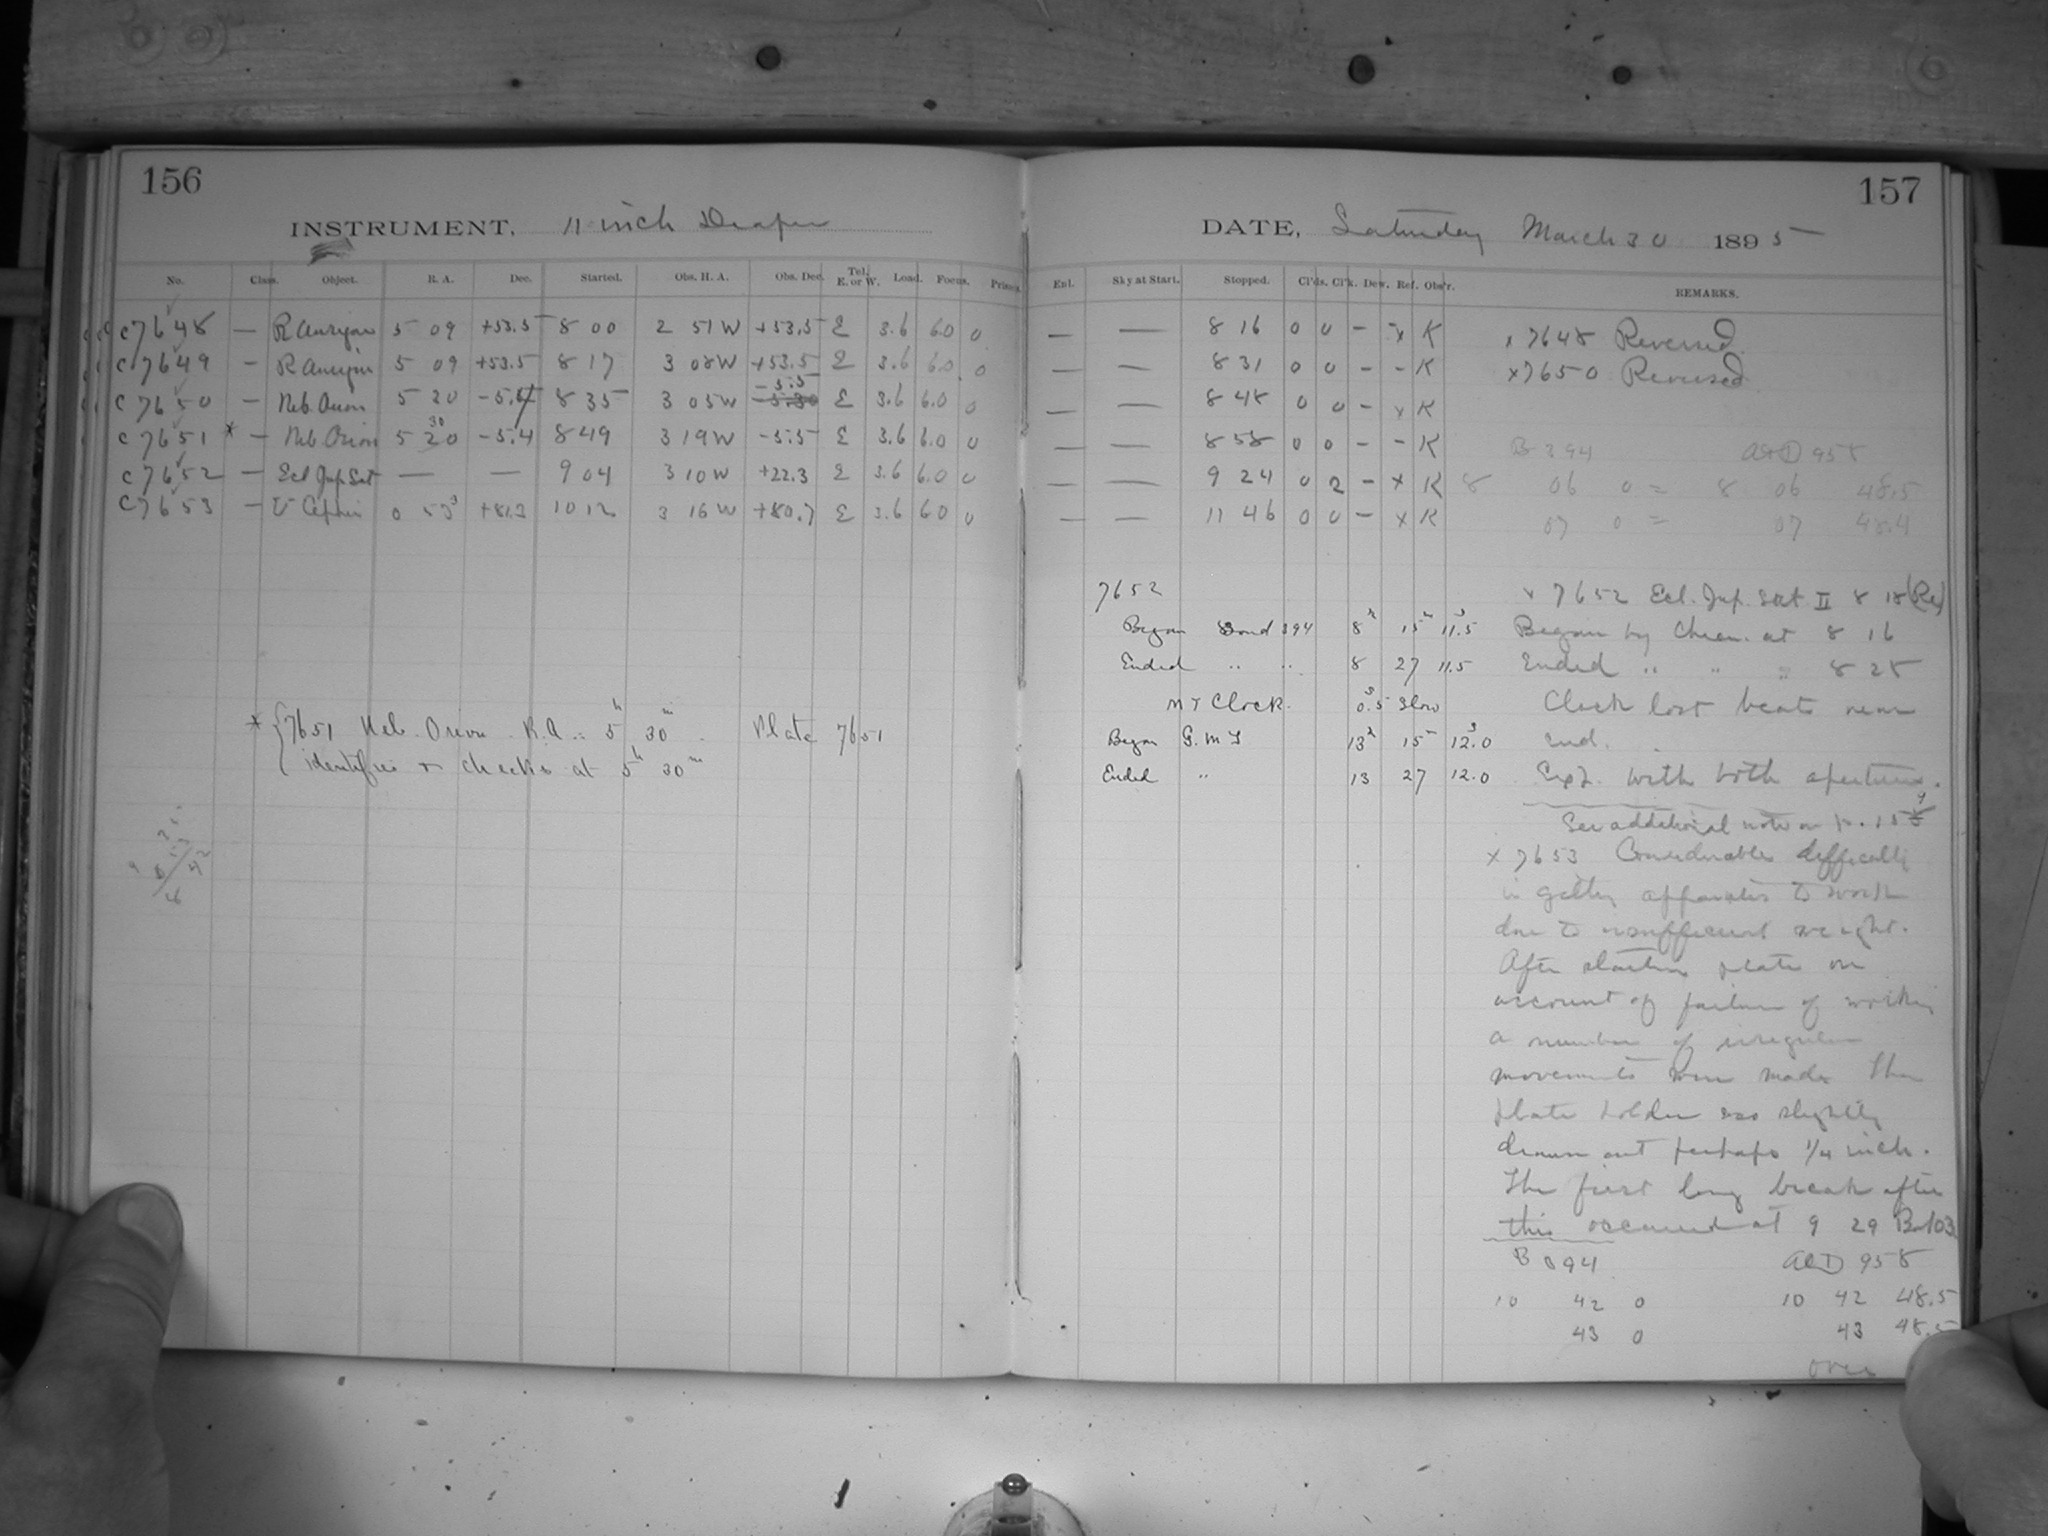 156
INSTRUMENT, 11 inch Draper
No. Class. Object. R. A. Dec. Started. Obs. H. A. Obs. Dec. Tel. E. or W. Load. Focus. Prisms.
C7648 — R Aurigae 5 09 +53.5 8 00 2 51 W +53.5 E 3.6 6.0 0
C7649 — R Aurigae 5 09 +53.5 8 17 3 08 W +53.5 E 3.6 6.0 0
-5.5
C7650 — Neb. Orion 5 20 -5.4 8 35 3 05 W -5.30 E 3.6 6.0 0
30
C7651 * — Neb. Orion 5 20 -5.4 8 49 3 19 W -5.5 E 3.6 6.0 0
C7652 — Ecl Jup Sat — — 9 04 3 10 W +22.3 E 3.6 6.0 0
C7653 — U Cephei 0 53 +81.3 10 12 3 16 W +80.7 E 3.6 6.0 0
* { 7651 Neb. Orion R.A. = 5h 30m. Plate 7651
identifies & checks at 5h 30m
157
DATE, Saturday March 30 1895
Enl. Sky at Start. Stopped. Cl'ds. Cl'k. Dew. Ref. Obs'r. REMARKS.
— — 8 16 0 0 — x K x 7648 Reversed.
— — 8 31 0 0 — — K x 7650 Reversed
— — 8 48 0 0 — x K
— — 8 58 0 0 — — K B 394 A&D 958
— — 9 24 0 2 — x K 8 06 0 = 8 06 48.5
— — 11 46 0 0 — x K 07 0 = 07 48.4
7652
Began Bond 394 8h 15m 11s.5
Ended " " 8 27 11.5
M T Clock. 0s.5 Slow
Began G. M T 13h 15m 12s.0
Ended " 13 27 12.0
x 7652 Ecl. Jup. Sat II 8 18 (Re)
Began by Chron. at 8 16
Ended " " " 8 28
Clock lost beats near
end.
Exp. with both apertures.
See additional note on p. 159
x 7653 Considerable difficulty
in getting apparatus to work
due to insufficient weight.
After starting plate on
account of failure of working
a number of irregular
movements were made. The
plate holder was slightly
drawn out perhaps 1/4 inch.
The first long break after
this occurred at 9 29
B 394 A&D 958
10 42 0 10 42 48.5
43 0 43 48.5
over